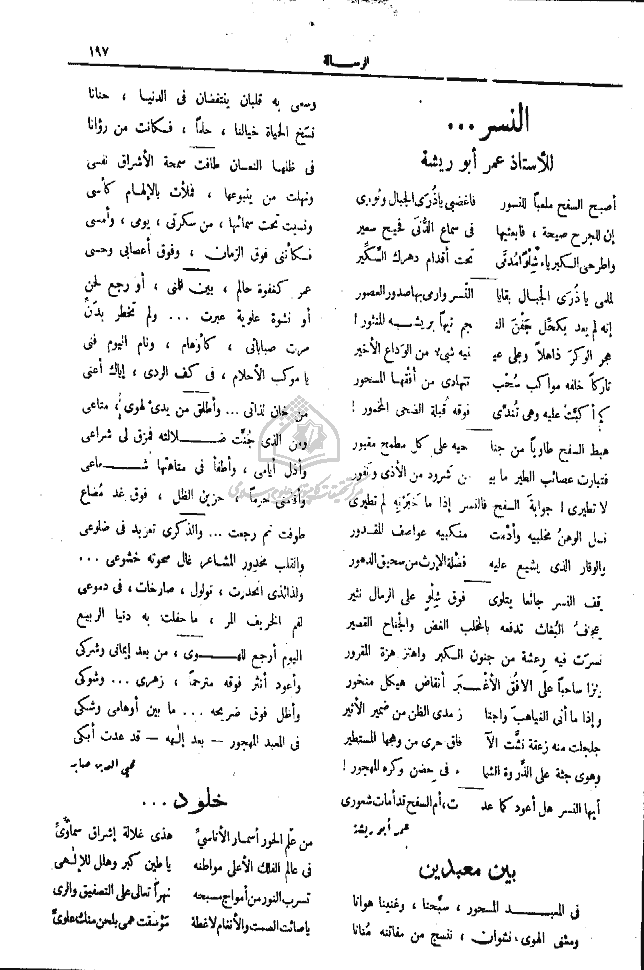 الرسالة
١٩٧
النسر ...
للأستاذ عمر أبو ريشة
أصبح السفح ملعباً للنسور فاغضبي ياذُرى الجبال وثوري
إن للجرح صيحة ، فابعثيها في سماع الدُّنى فحيح سعير
واطرحي الكبرياء شِلْواً مُدمَّى تحت أقدام دهرك السكِّير
لملمي يا ذُرى الجبال بقايا النَّسر وارمي بها صدور العصور
إنه لم يعد يكحل جَفْنَ النـ ـجم تيهاً بريشـــه المنثور !
هجر الوكرَ ذاهلاً وعلى عيـ ـنيه شيء من الوداع الأخير
تاركاً خلفه مواكب سُحْب تتهادى من أفقها المسحور
كم أكبَّتْ عليه وهي تُندِّي فوقه قبلة الضحى المخمور !
هبط السفح طاوياً من جنا حيه على كل مطمح مقبور
فتبارت عصائب الطير ما بيـ ـن شرود من الأذى ونفور
لا تطيري ! جوابة السفح فالنسر إذا ما خبَرْتِهِ لم تطيري
نسل الوهنُ مخلبيه وأدْمت منكبيه عواصف المقدور
والوقار الذي يشيع عليه فضلة الإرث من سحيق الدهور
وقف النسر جائعاً يتلوى فوق شِلْوٍ على الرمال نثير
وعجافُ البُغاث تدفعه بالمخلب الغض والجناح القصير
فسَرَت فيه رعشة من جنون الكبر واهتز هزة المقرور
ساحباً على الأفق الأغْـــبَر أنقاض هيكل منخور
وإذا ما أتى الغياهب واجتا ز مدى الظن من ضمير الأثير
جلجلت منه زعقة نشَّت الآ فاق حرى من وهجها المستطير
وهوى جثة على الذروة الشما ء في حضن وكره المهجور !
أيها النسر هل أعود كما عد ت ، أم السفح قد أمات شعوري
عمر أبو ريشة
بين معبدين
في المعبـــد المسحور ، سبَّحنا ، وغنينا هوانا
ومشى الهوى ، نشوان ، ننسج من مفاتنه مُنانا
وسعى به قلبان ينتفضان في الدنيا ، حنانا
نسَخ الحياة خيالنا ، حلماً ، فكانت من رؤانا
في ظلها النعسان طافت سمحة الأشراق نفسي
ونهلت من ينبوعها ، فملأت بالإلهام كأسي
وندبت تحت سمائها ، من سكرتي ، يومي ، وأمسي
فكأنني فوق الزمان ، وفوق أعصابي وحسي
عمر كغفوة حالم ، بين قلبي ، أو رجع لحن
أو نشوة علوية عبرت ... ولم تخطر بدَنّ
مرت صباباتي ، كأوهام ، ونام اليوم فني
يا موكب الأحلام ، في كف الردى ، إياك أعني
من خان لذاتي ... وأطلق من يدي لهوي ، متاعي
ومن الذي جُنَّت ضـــلالته فمزق لي شراعي
وأذل أيامي ، وأطفأ في متاهتها شـــعاعي
حزين الظل ، فوق غد مُضاع
طوفت ثم رجعت ... والذكرى تعربد في ضلوعي
والقلب مخدور المشاعر غال صحوته خشوعي ...
ولذائذي انحدرت ، تولول ، صارخات ، في دموعي
الخريف المر ، ما حفلت به دنيا الربيع
اليوم أرجع للهـــوى ، من بعد إيماني وشركي
وأعود أنثر فوقه مترحماً ، زهري ... وشوكي
وأظل فوق ضريحه ... ما بين أوهامي وشكي
في المعبد المهجور — بعد إلهه — قد عدت أبكي
محيي الدين صابر
خلود ...
من علّم الحور أسمار الأناسيِّ هذي غلالة إشراق سماوِيِّ
في عالم الفلك الأعلى مواطنه يا طين كبر وهلل للإلهي
تسرب النور من أمواج مسبحه نهراً تعالى على التصفيق والري
يا صائت الصمت والأنغام لاغطة مَوْسقت همي بلحن منك علويِّ